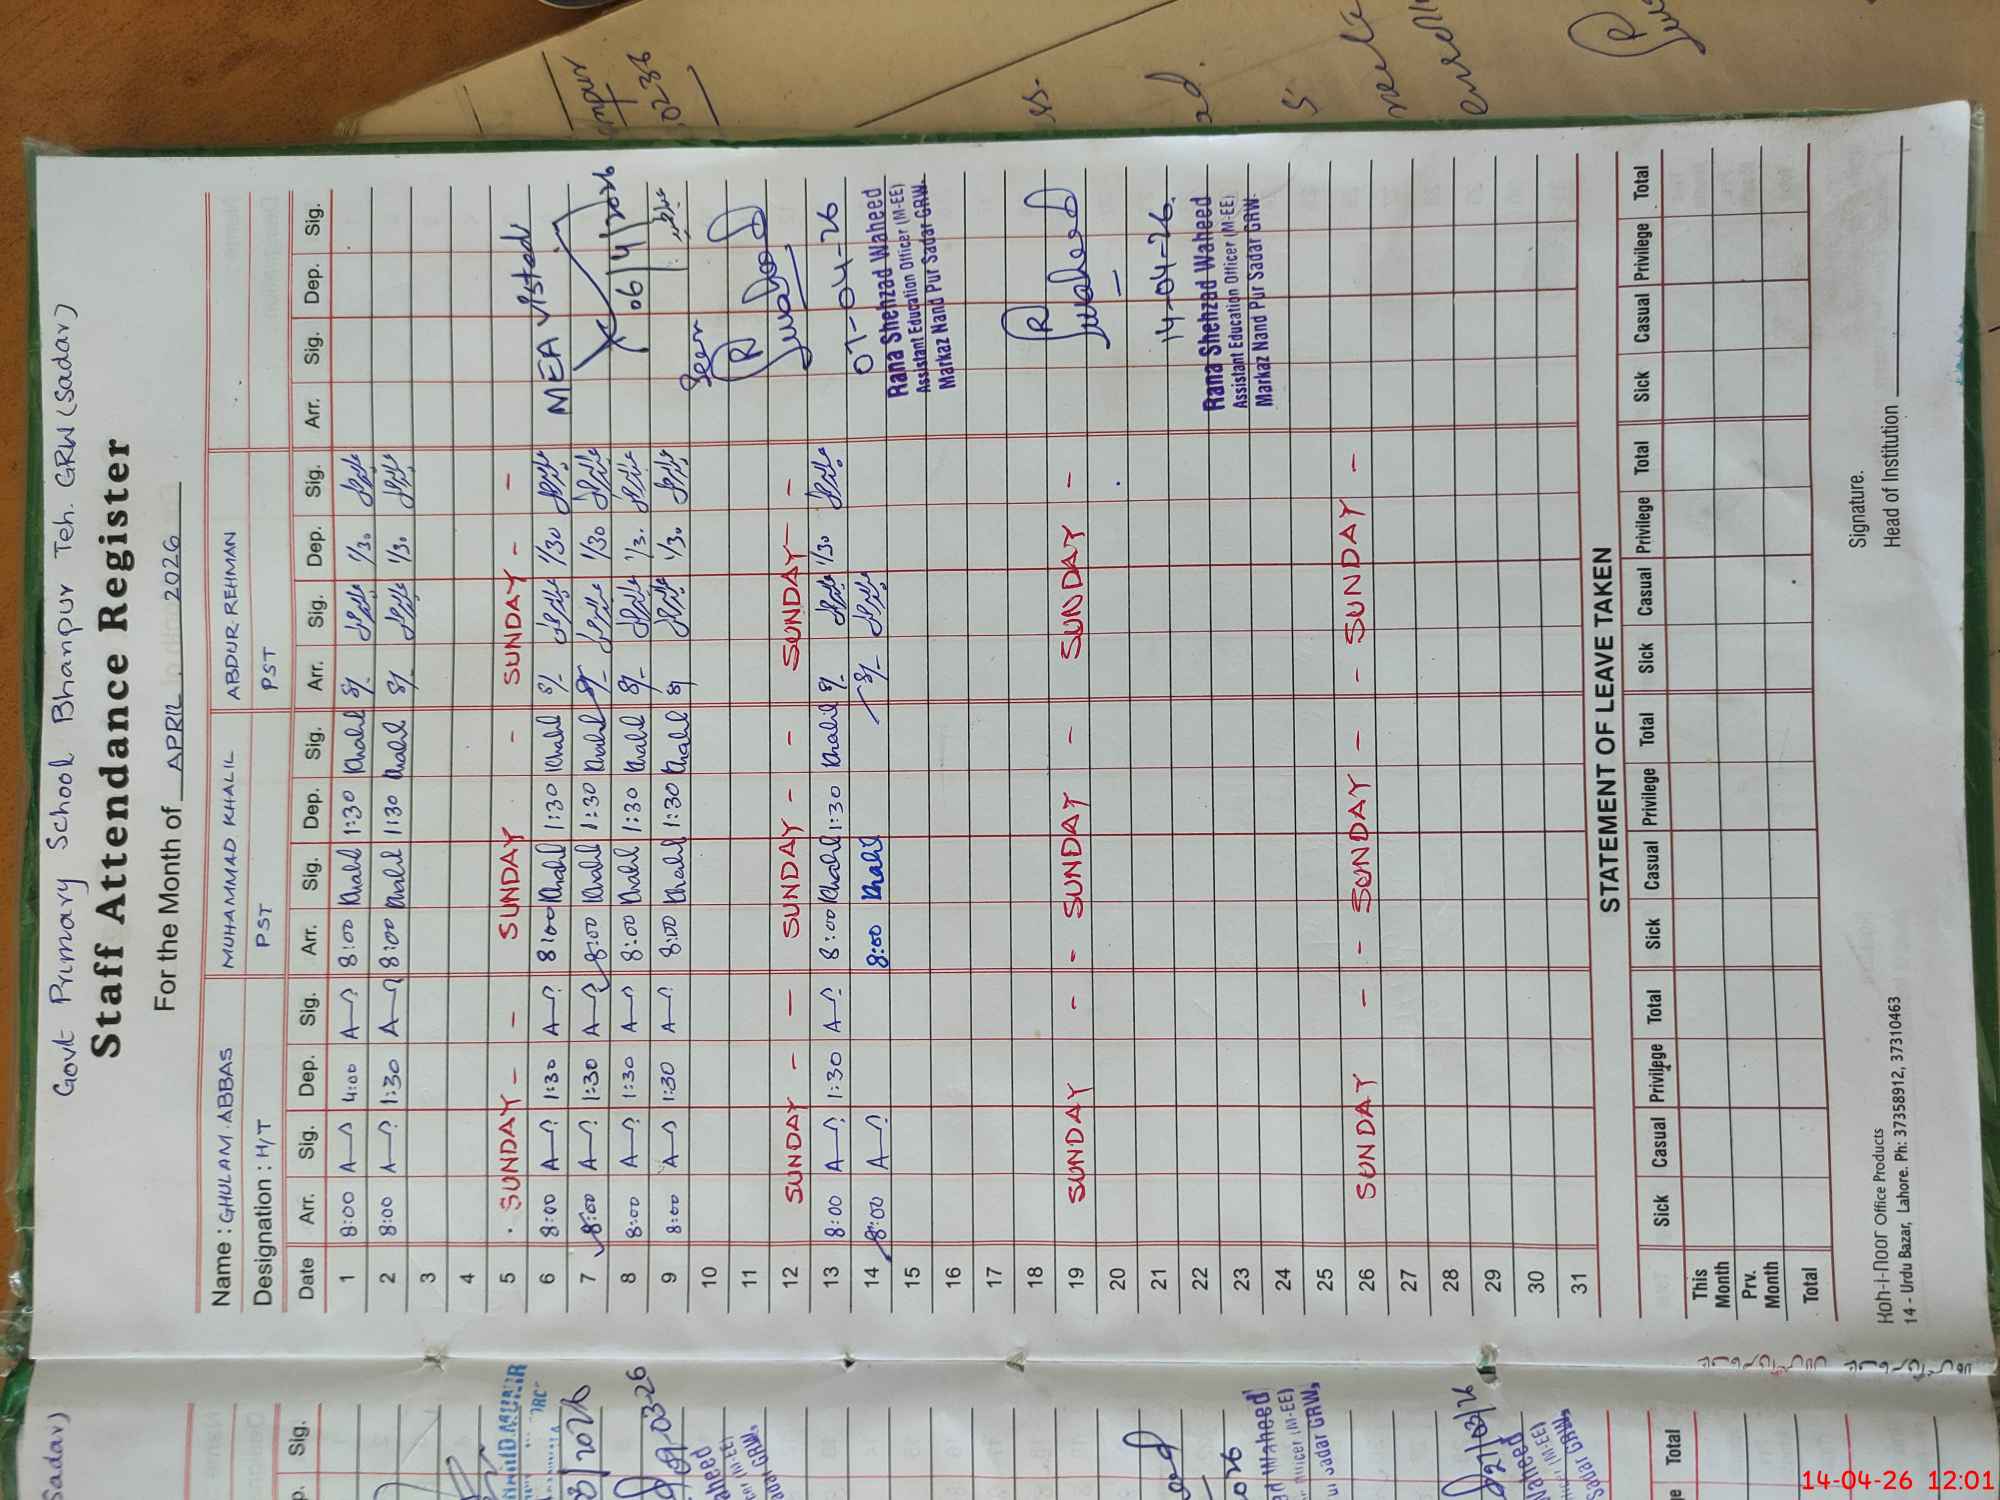 Govt Primary School Bhanpur Teh. GRW (Sadar)
Staff Attendance Register
For the Month of APRIL 2026
Name : GHULAM ABBAS MUHAMMAD KHALIL ABDUR REHMAN
Designation : H/T PST PST
Date Arr. Sig. Dep. Sig. Arr. Sig. Dep. Sig. Arr. Sig. Dep. Sig. Arr. Sig. Dep. Sig.
1 8:00 4:00 8:00 Khalil 1:30 Khalil 8/- 1/30
2 8:00 1:30 8:00 Khalil 1:30 Khalil 8/- 1/30
3
4
5 SUNDAY - - SUNDAY - SUNDAY - -
6 8:00 1:30 8:00 Khalil 1:30 Khalil 8/- 1/30
7 8:00 1:30 8:00 Khalil 1:30 Khalil 8/- 1/30
8 8:00 1:30 8:00 Khalil 1:30 Khalil 8/- 1/30
9 8:00 1:30 8:00 Khalil 1:30 Khalil 8/ 1/30
10
11
12 SUNDAY - - SUNDAY - - SUNDAY - -
13 8:00 1:30 8:00 Khalil 1:30 Khalil 8/- 1/30
14 8:00 8:00 Khalil 8/-
15
16
17
18
19 SUNDAY - - SUNDAY - SUNDAY -
20
21
22
23
24
25
26 SUNDAY - - SUNDAY - - SUNDAY -
27
28
29
30
31
MEA visted
06/4/2026
Seen
07-04-26
Rana Shehzad Waheed
Assistant Education Officer (M-EE)
Markaz Nand Pur Sadar GRW.
14-04-26.
Rana Shehzad Waheed
Assistant Education Officer (M-EE)
Markaz Nand Pur Sadar GRW.
STATEMENT OF LEAVE TAKEN
Sick Casual Privilege Total Sick Casual Privilege Total Sick Casual Privilege Total Sick Casual Privilege Total
This Month
Prv. Month
Total
Koh-I-Noor Office Products
14 - Urdu Bazar, Lahore. Ph: 37358912, 37310463
Signature.
Head of Institution
Sadar)
Sig.
Waheed
(M-EE)
Sadar GRW,
27/03/26
Waheed
(M-EE)
Sadar GRW,
Total
14-04-26 12:01